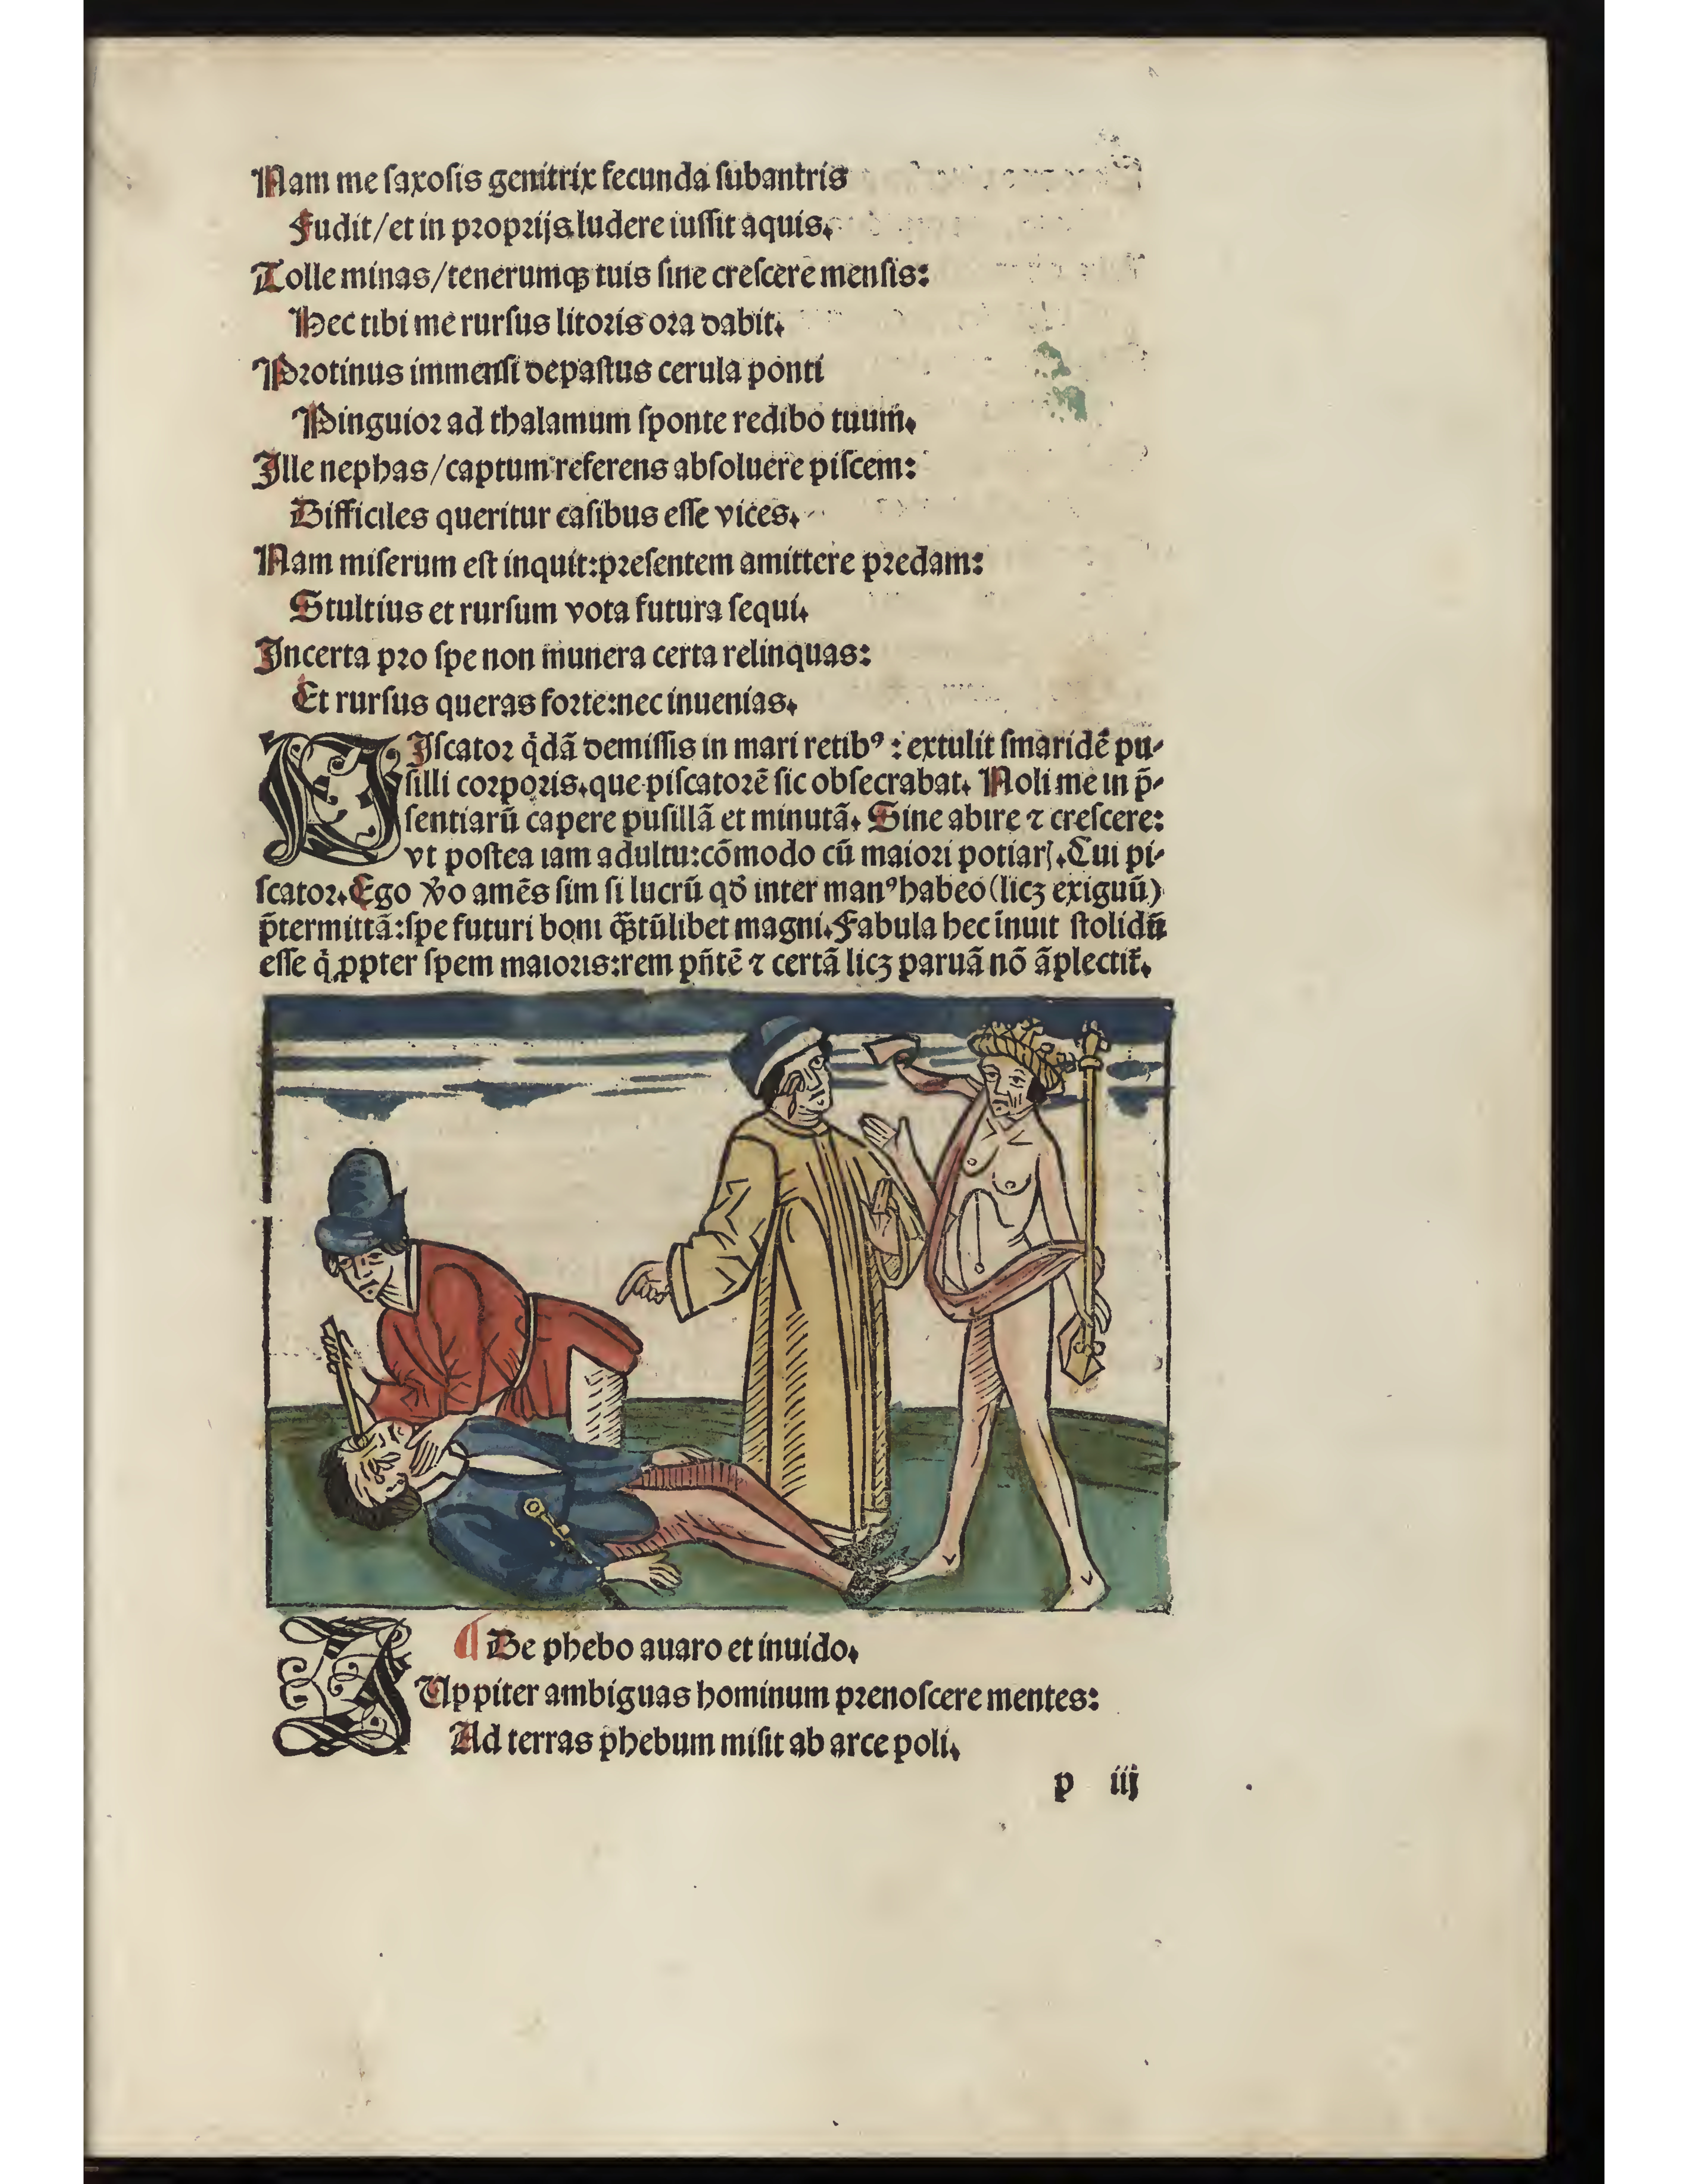 Nam me ſaxoſis genitrix fecunda ſubantris
Fudit/et in proprijs ludere iuſſit aquis.
Tolle minas/tenerumqꝫ tuis ſine creſcere menſis:
Hec tibi me rurſus litoris ora dabit.
Protinus immenſi depaſtus cerula ponti
Pinguior ad thalamum ſponte redibo tuum.
Ille nephas/captum referens abſoluere piſcem:
Difficiles queritur caſibus eſſe vices.
Nam miſerum eſt inquit:preſentem amittere predam:
Stultius et rurſum vota futura ſequi.
Incerta pro ſpe non munera certa relinquas:
Et rurſus queras forte:nec inuenias.
PIſcator q̇dā demiſſis in mari retibꝰ : extulit ſmaridē pu-
ſilli corporis.que piſcatorē ſic obſecrabat. Noli me in p̄-
ſentiarū capere puſillā et minutā. Sine abire ⁊ creſcere:
vt poſtea iam adultu:cōmodo cū maiori potiarſ.Cui pi-
ſcator.Ego v̆o amēs ſim ſi lucrū qđ inter manꝰ habeo (licꝫ exiguū)
p̄termittā:ſpe futuri boni qᷓꝫtūlibet magni.Fabula hec īnuit ſtolidū
eſſe q̇ ꝓpter ſpem maioris:rem pn̄tē ⁊ certā licꝫ paruā nō āplectit᷑.
¶ De phebo auaro et inuido.
IUppiter ambiguas hominum prenoſcere mentes:
Ad terras phebum miſit ab arce poli.
p iij